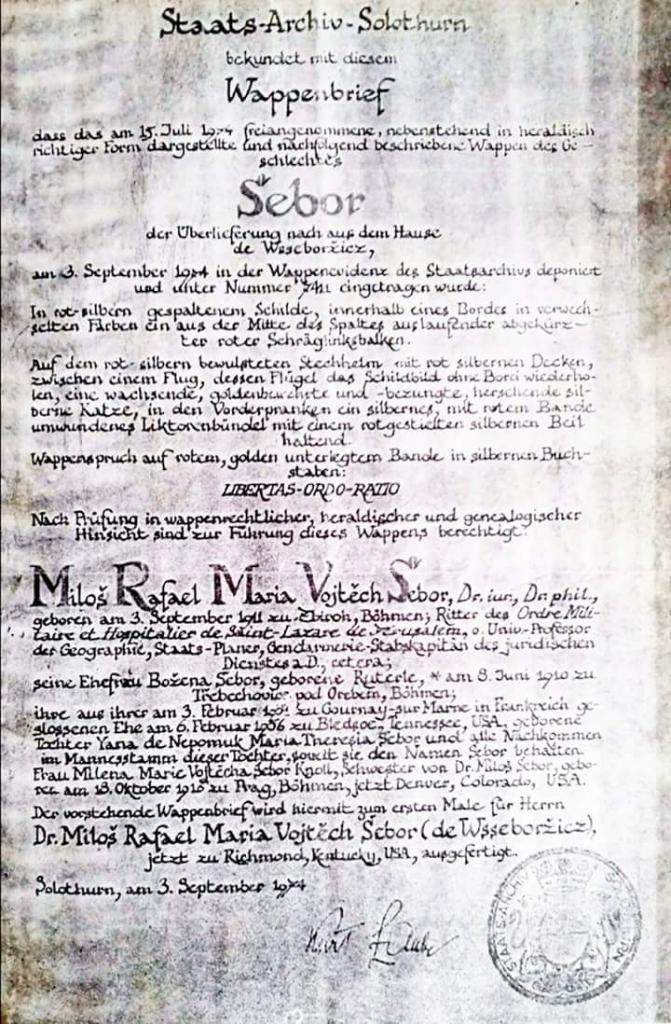 Staats-Archiv-Solothurn
bekundet mit diesem
Wappenbrief
dass das am 15. Juli 1974 freiangenommene, nebenstehend in heraldisch
richtiger Form dargestellte und nachfolgend beschriebene Wappen des Ge-
schlechtes
Šebor
der Überlieferung nach aus dem Hause
de Wsseboržicz,
am 3. September 1974 in der Wappenevidenz des Staatsarchivs deponiert
und unter Nummer eingetragen wurde:
In rot-silbern gespaltenem Schilde, innerhalb eines Bordes in verwech-
selten Farben ein aus der Mitte des Spaltes auslaufender abgekürz-
ter roter Schräglinksbalken.
Auf dem rot-silbern bewulsteten Stechhelm mit rot silbernen Decken,
zwischen einem Flug, dessen Flügel das Schildbild ohne Bord wiederho-
len, eine wachsende, goldenbewehrte und -bezungte, herschende sil-
berne Katze, in den Vorderpranken ein silbernes, mit rotem Bande
umwundenes Liktorenbündel mit einem rotgestielten silbernen Beil
haltend.
Wappenspruch auf rotem, golden unterlegtem Bande in silbernen Buch-
staben:
LIBERTAS-ORDO-RATIO
Nach Prüfung in wappenrechtlicher, heraldischer und genealogischer
Hinsicht sind zur Führung dieses Wappens berechtigt:
Miloš Rafael Maria Vojtěch Šebor, Dr. iur., Dr. phil.,
geboren am 3. September 1911 zu Zbiroh, Böhmen; Ritter des Ordre Mili-
taire et Hospitalier de Saint-Lazare de Jerusalem, o. Univ.-Professor
der Geographie, Staats-Planer, Gendarmerie-Stabskapitän des juridischen
Dienstes a.D., cetera;
seine Ehefrau Božena Šebor, geborene Ruterle, * am 8. Juni 1910 zu
Třebechovice pod Orebem, Böhmen;
ihre aus ihrer am 3. Februar zu Gournay-sur Marne in Frankreich ge-
slossenen Ehe am 6. Februar 1956 zu Bledsoe, Tennessee, USA, geborene
Tochter Yana de Nepomuk Maria Theresia Šebor und alle Nachkommen
im Mannesstamm dieser Tochter, soweit sie den Namen Šebor behalten.
Frau Milena Marie Vojtěcha Šebor Knoll, Schwester von Dr. Miloš Šebor, gebo-
ren am 18. Oktober zu Prag, Böhmen, jetzt Denver, Colorado, USA.
Der vorstehende Wappenbrief wird hiermit zum ersten Male für Herrn
Dr. Miloš Rafael Maria Vojtěch Šebor (de Wsseboržicz),
jetzt zu Richmond, Kentucky, USA, ausgefertigt.
Solothurn, am 3. September 1974
STAATS-ARCHIV